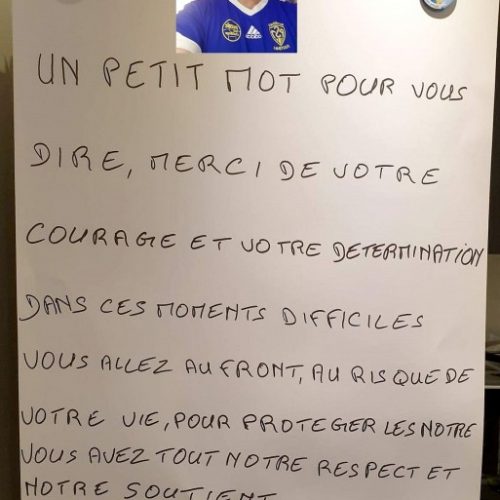 UN PETIT MOT POUR VOUS
DIRE, MERCI DE VOTRE
COURAGE ET VOTRE DETERMINATION
DANS CES MOMENTS DIFFICILES
VOUS ALLEZ AU FRONT, AU RISQUE DE
VOTRE VIE, POUR PROTEGER LES NOTRE
VOUS AVEZ TOUT NOTRE RESPECT ET
NOTRE SOUTIENT